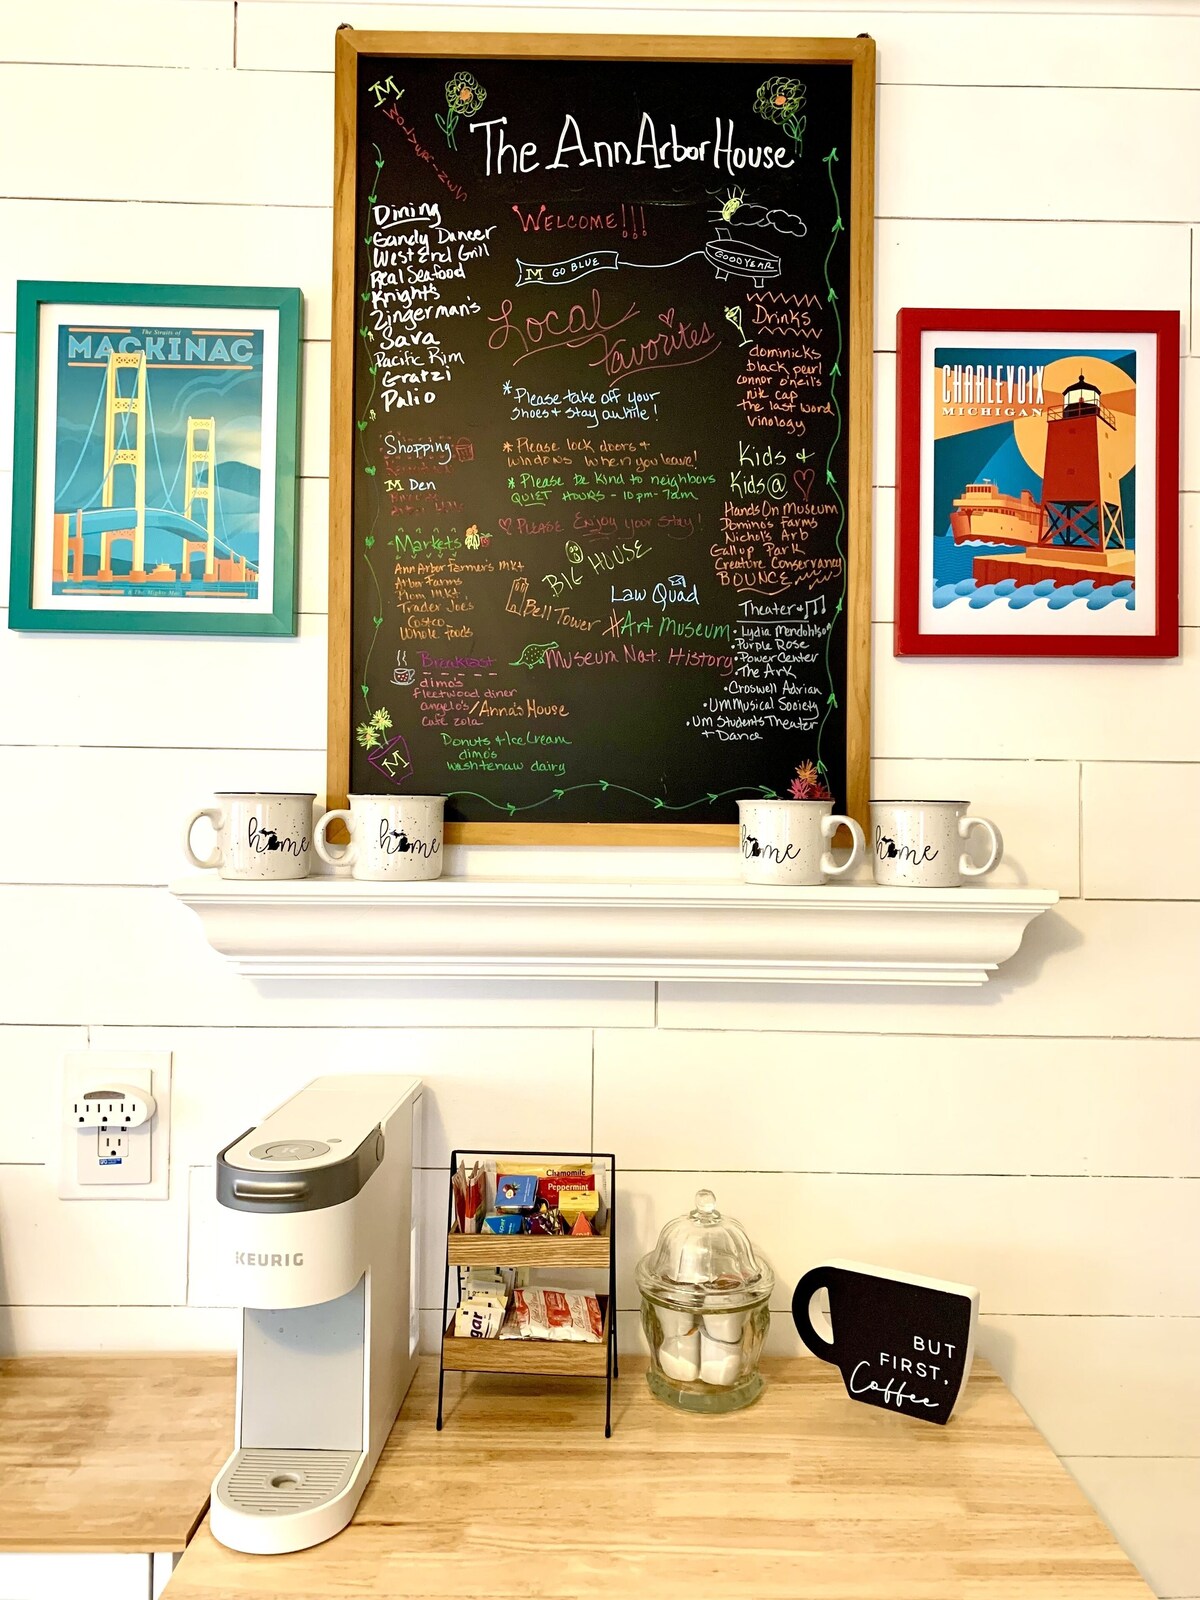 M
WOLVERINES
The Ann Arbor House
WELCOME!!!
M GO BLUE
GOODYEAR
Local
Favorites
Dining
Gandy Dancer
West End Grill
Real Seafood
Knights
Zingerman's
Sava
Pacific Rim
Gratzi
Palio
Shopping
M Den
Markets
Ann Arbor Farmer's Mkt
Arbor Farms
Plum Mkt,
Trader Joes
Costco
Whole Foods
Breakfast
dimo's
fleetwood diner
angelo's / Anna's House
Cafe Zola
Donuts + Ice Cream
dimo's
washtenaw dairy
M
* Please take off your
shoes + stay awhile!
* Please lock doors +
windows when you leave!
* Please be kind to neighbors
QUIET HOURS - 10pm - 7am
PLEASE ENJOY your stay!
BIG HOUSE
Law Quad
Bell Tower
#Art Museum
Museum Nat. History
Drinks
dominicks
black pearl
connor o'neil's
nik cap
the last word
vinology
Kids +
Kids@
Hands On Museum
Domino's Farms
Nichols Arb
Gallup Park
Creature Conservancy
BOUNCE
Theater +
• Lydia Mendohlson
• Purple Rose
• Power Center
• The Ark
• Croswell Adrian
• UM Musical Society
• UM Students Theater
+ Dance
The Straits of
MACKINAC
CHARLEVOIX
MICHIGAN
home
home
home
home
KEURIG
Chamomile
Peppermint
gar
BUT
FIRST,
Coffee